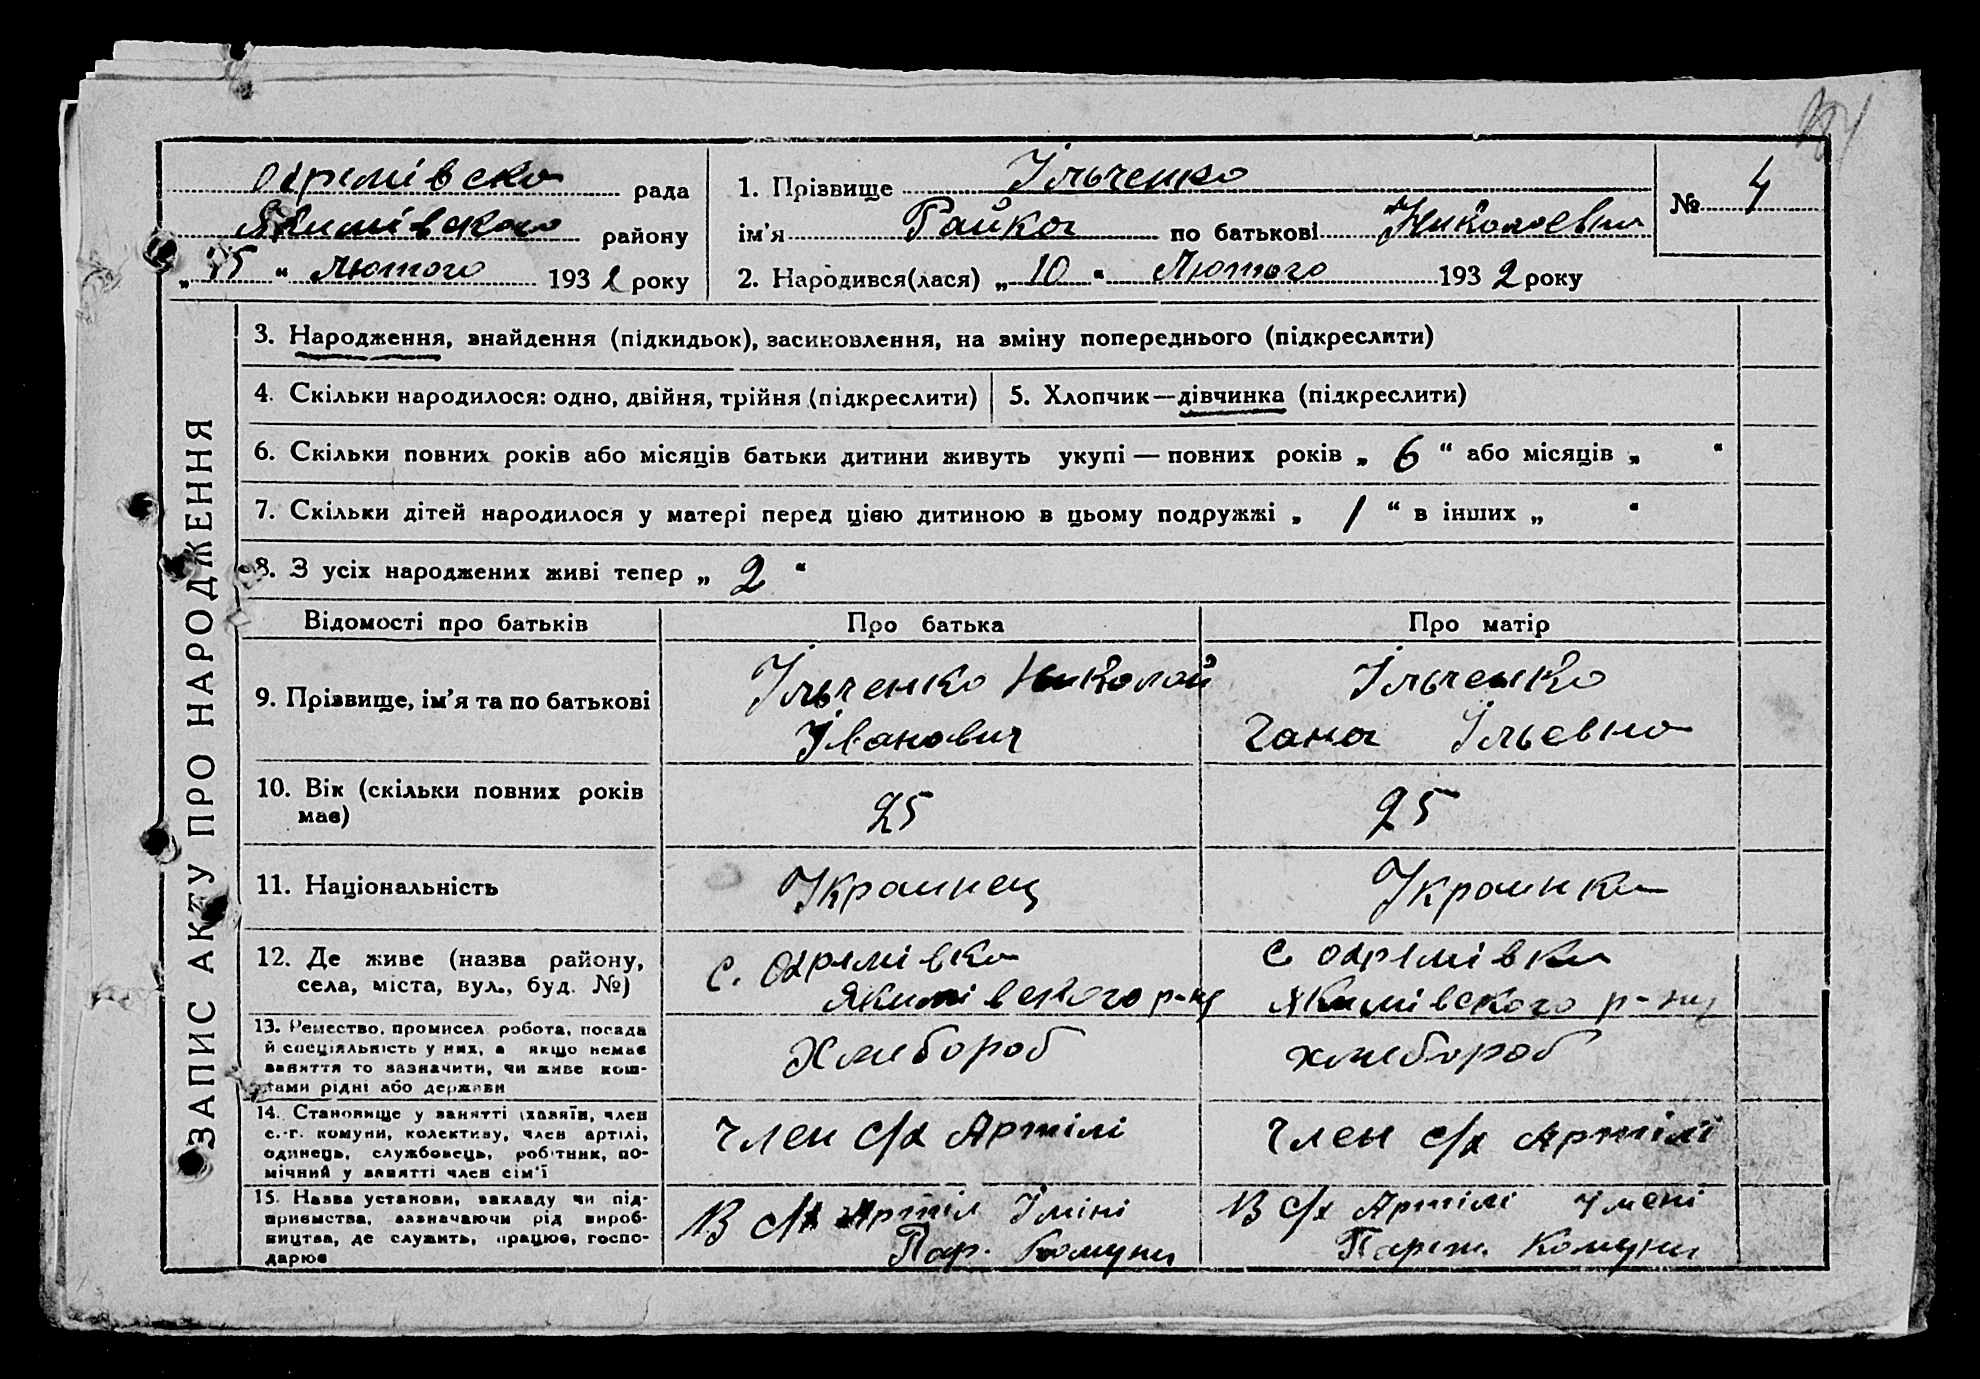 Охремівска рада
Якимівского району
„15“ Лютого 1932 року
1. Прізвище Ільченко
ім'я Райка по батькові Николаевна
2. Народився(лася) „10“ Лютого 1932 року
№ 4
ЗАПИС АКТУ ПРО НАРОДЖЕННЯ
3. Народження, знайдення (підкидьок), засиновлення, на зміну попереднього (підкреслити)
4. Скільки народилося: одно, двійня, трійня (підкреслити)
5. Хлопчик—дівчинка (підкреслити)
6. Скільки повних років або місяців батьки дитини живуть укупі — повних років „ 6 “ або місяців „ “
7. Скільки дітей народилося у матері перед цією дитиною в цьому подружжі „ 1 “ в інших „ “
8. З усіх народжених живі тепер „ 2 “
Відомості про батьків
Про батька
Про матір
9. Прізвище, ім'я та по батькові
Ільченко Николай
Іванович
Ільченко
Гана Ільевна
10. Вік (скільки повних років
має)
25
25
11. Національність
Украинец
Украинка
12. Де живе (назва району,
села, міста, вул., буд. №)
с. Охремівка
Якимівского р-ну
с Охремівка
Якимівского р-ну
13. Ремество, промисел робота, посада
й спеціяльність у них, а якщо немає
заняття то зазначити, чи живе кош-
тами рідні або держави
Хлибороб
хлибороб
14. Становище у занятті (хазяїн, член
с.-г. комуни, колективу, член артілі,
одинець, службовець, робітник, по-
мічний у занятті член сім'ї
Член с/х Артілі
Член с/х Артілі
15. Назва установи, закладу чи під-
приємства, зазначаючи рід вироб-
ництва, де служить, працює, госпо-
дарює
В с/х Артіл Іміні
Пар. Комуни
В с/х Артілі Імені
Париж. Комуни